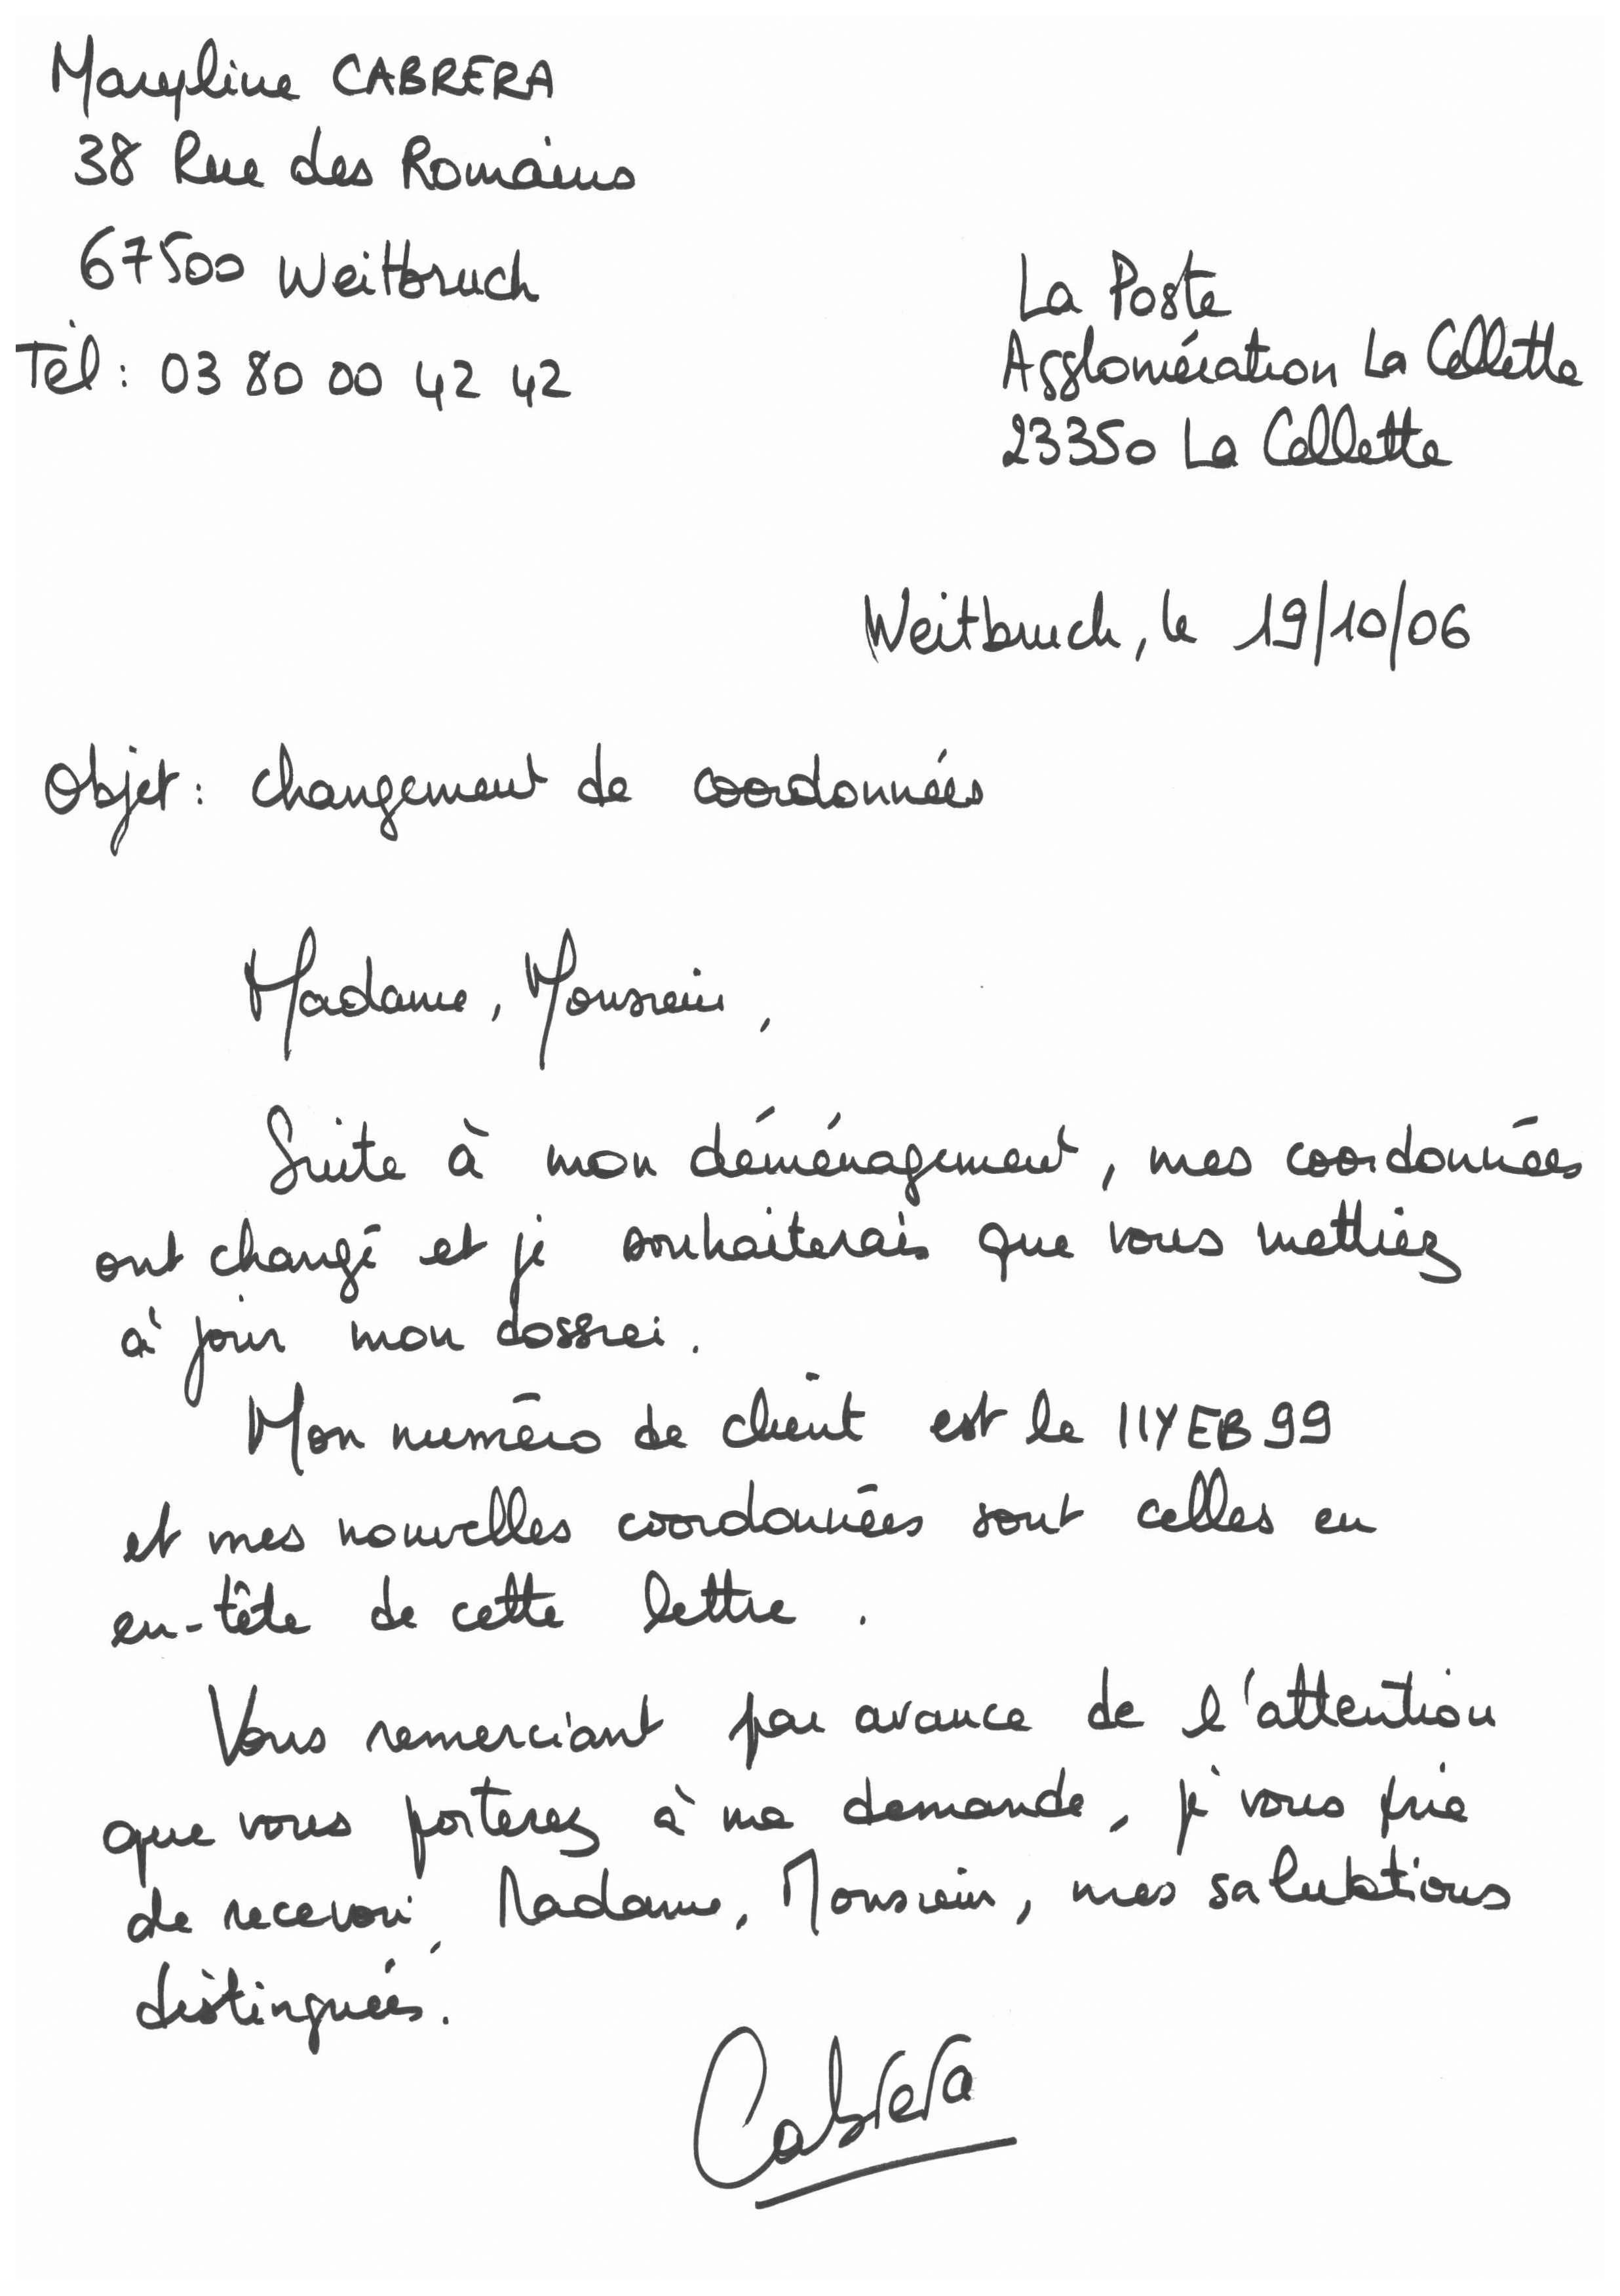 Maryline CABRERA
38 Rue des Romains
67500 Weitbruch
Tél : 03 80 00 42 42
La Poste
Agglomération La Cellette
23350 La Cellette
Weitbruch, le 19/10/06
Objet : changement de coordonnées
Madame, Monsieur,
Suite à mon déménagement, mes coordonnées
ont changé et je souhaiterais que vous mettiez
à jour mon dossier.
Mon numéro de client est le IIYEB99
et mes nouvelles coordonnées sont celles en
en-tête de cette lettre.
Vous remerciant par avance de l'attention
que vous porterez à ma demande, je vous prie
de recevoir, Madame, Monsieur, mes salutations
distinguées.
Cabrera